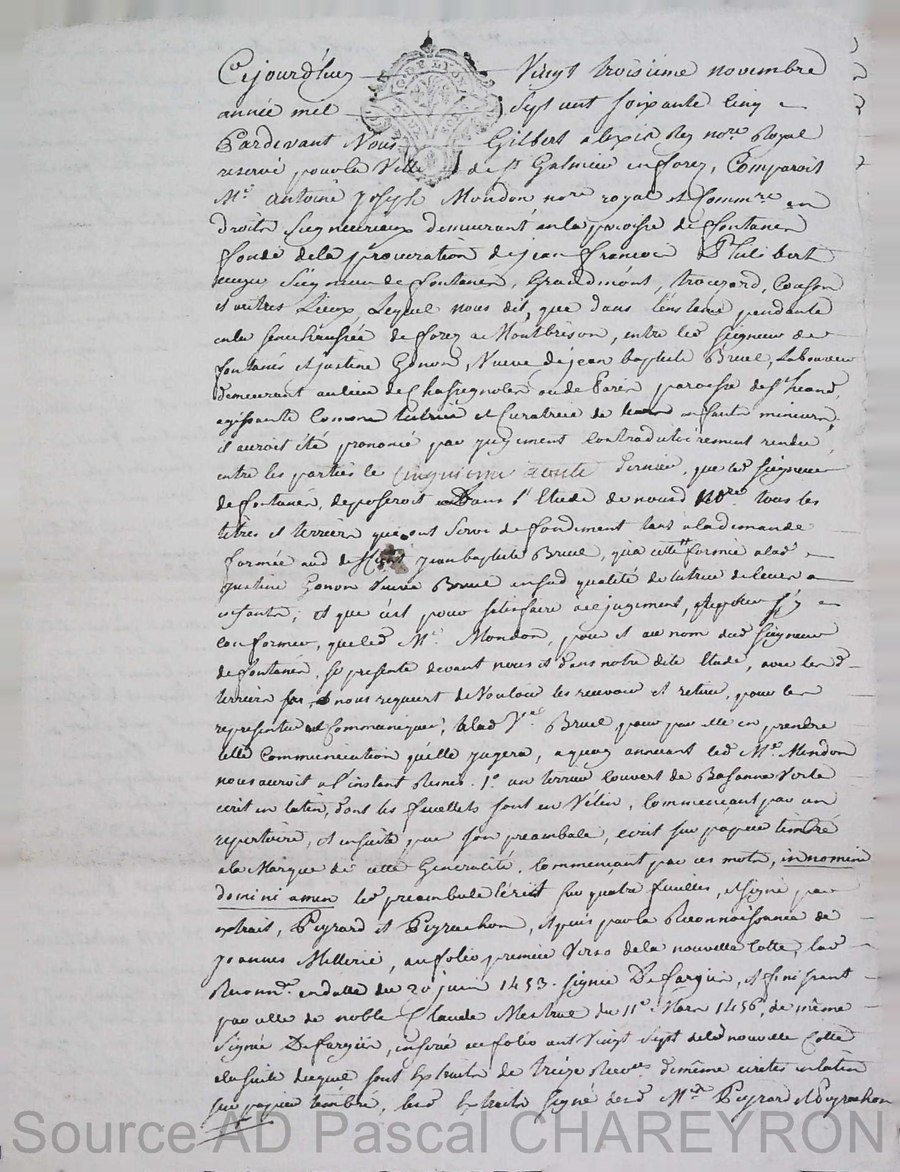 Cejourd'huy Vingt troisieme novembre
année mil Sept cent soixante Cinq
Pardevant Nous Gilbert alexis Rey nore Royal
reservé pour la Ville de St Galmier en forez, Comparoit
Mr. antoine joseph Mondon nore royal et Commre en
droits Seigneuriaux demeurant en la paroisse de fontanes
fondé de la procuration de jean francois Philibert
Seigneur de fontanes, Grandmont, trouzard, Cousson
et autres Lieux, Lequel nous dit, que dans l'instance pendante
en la senechaussée de forez a Montbrison, entre led Seigneur de
fontanes et justine Gonon, Veuve de jean baptiste Bruel, Laboureur
demeurant au lieu de Chassignoles paroisse de St heand,
agissante Comme tutrice et Curatrice de enfants mineurs,
il auroit été prononcé par jugement contradictoirement rendu
entre les parties le Cinquieme aoust dernier, que led Seigneur
de fontanes, deposeroit Dans l'Etude de nousd Nore tous les
titres et terriers qui ont Servi de fondement tant a la demande
formée aud jean baptiste Bruel, qu'a cette formée a lad
justine Gonon Veuve Bruel en sad qualité de tutrice de leurs
enfants; et que c'est pour satisfaire a ce jugement, et s'y
conformer, que led Mr. Mondon, pour et au nom dud Seigneur
de fontanes, se presente devant nous et dans notre dite Etude, avec lesd
terriers et nous requiert de Vouloir les recevoir et retenir, pour les
representer et Communiquer, a lad Ve. Bruel pour par elle en prendre
telle Communication qu'elle jugera, a quoy adherant led Mr. Mondon
nous auroit a l'instant Remis. 1o. un terrier Couvert de Basanne Verte
ecrit en latin, dont les feuillets sont en Vélin, Commencant par un
repertoire, et ensuite par son preambule, ecrit sur papier timbré
a la Marque de cette Generalité, Commençant par ces mots, in nomine
domini amen led preambule écrit sur quatre feuilles, et signé par
extrait, Peyrard et Peyrachon, et puis par la Reconnaissance de
joannes Millerie, au folio premier Verso de la nouvelle Cotte, lad
Reconnce. en datte du 20 juin 1453. signée Defargiis, et finissant
par celle de noble Claude Mestral du 11e. Mars 1456, de même
Signé Defargiis, inserée au folio cent Vingt Sept de lad nouvelle Cotte
a la suite duquel sont Extraits de treize Recces de même ecrites en latin
sur papier timbré, lesd Extraits signé desd Mrs. Peyrard et Peyrachon
Source AD Pascal CHAREYRON